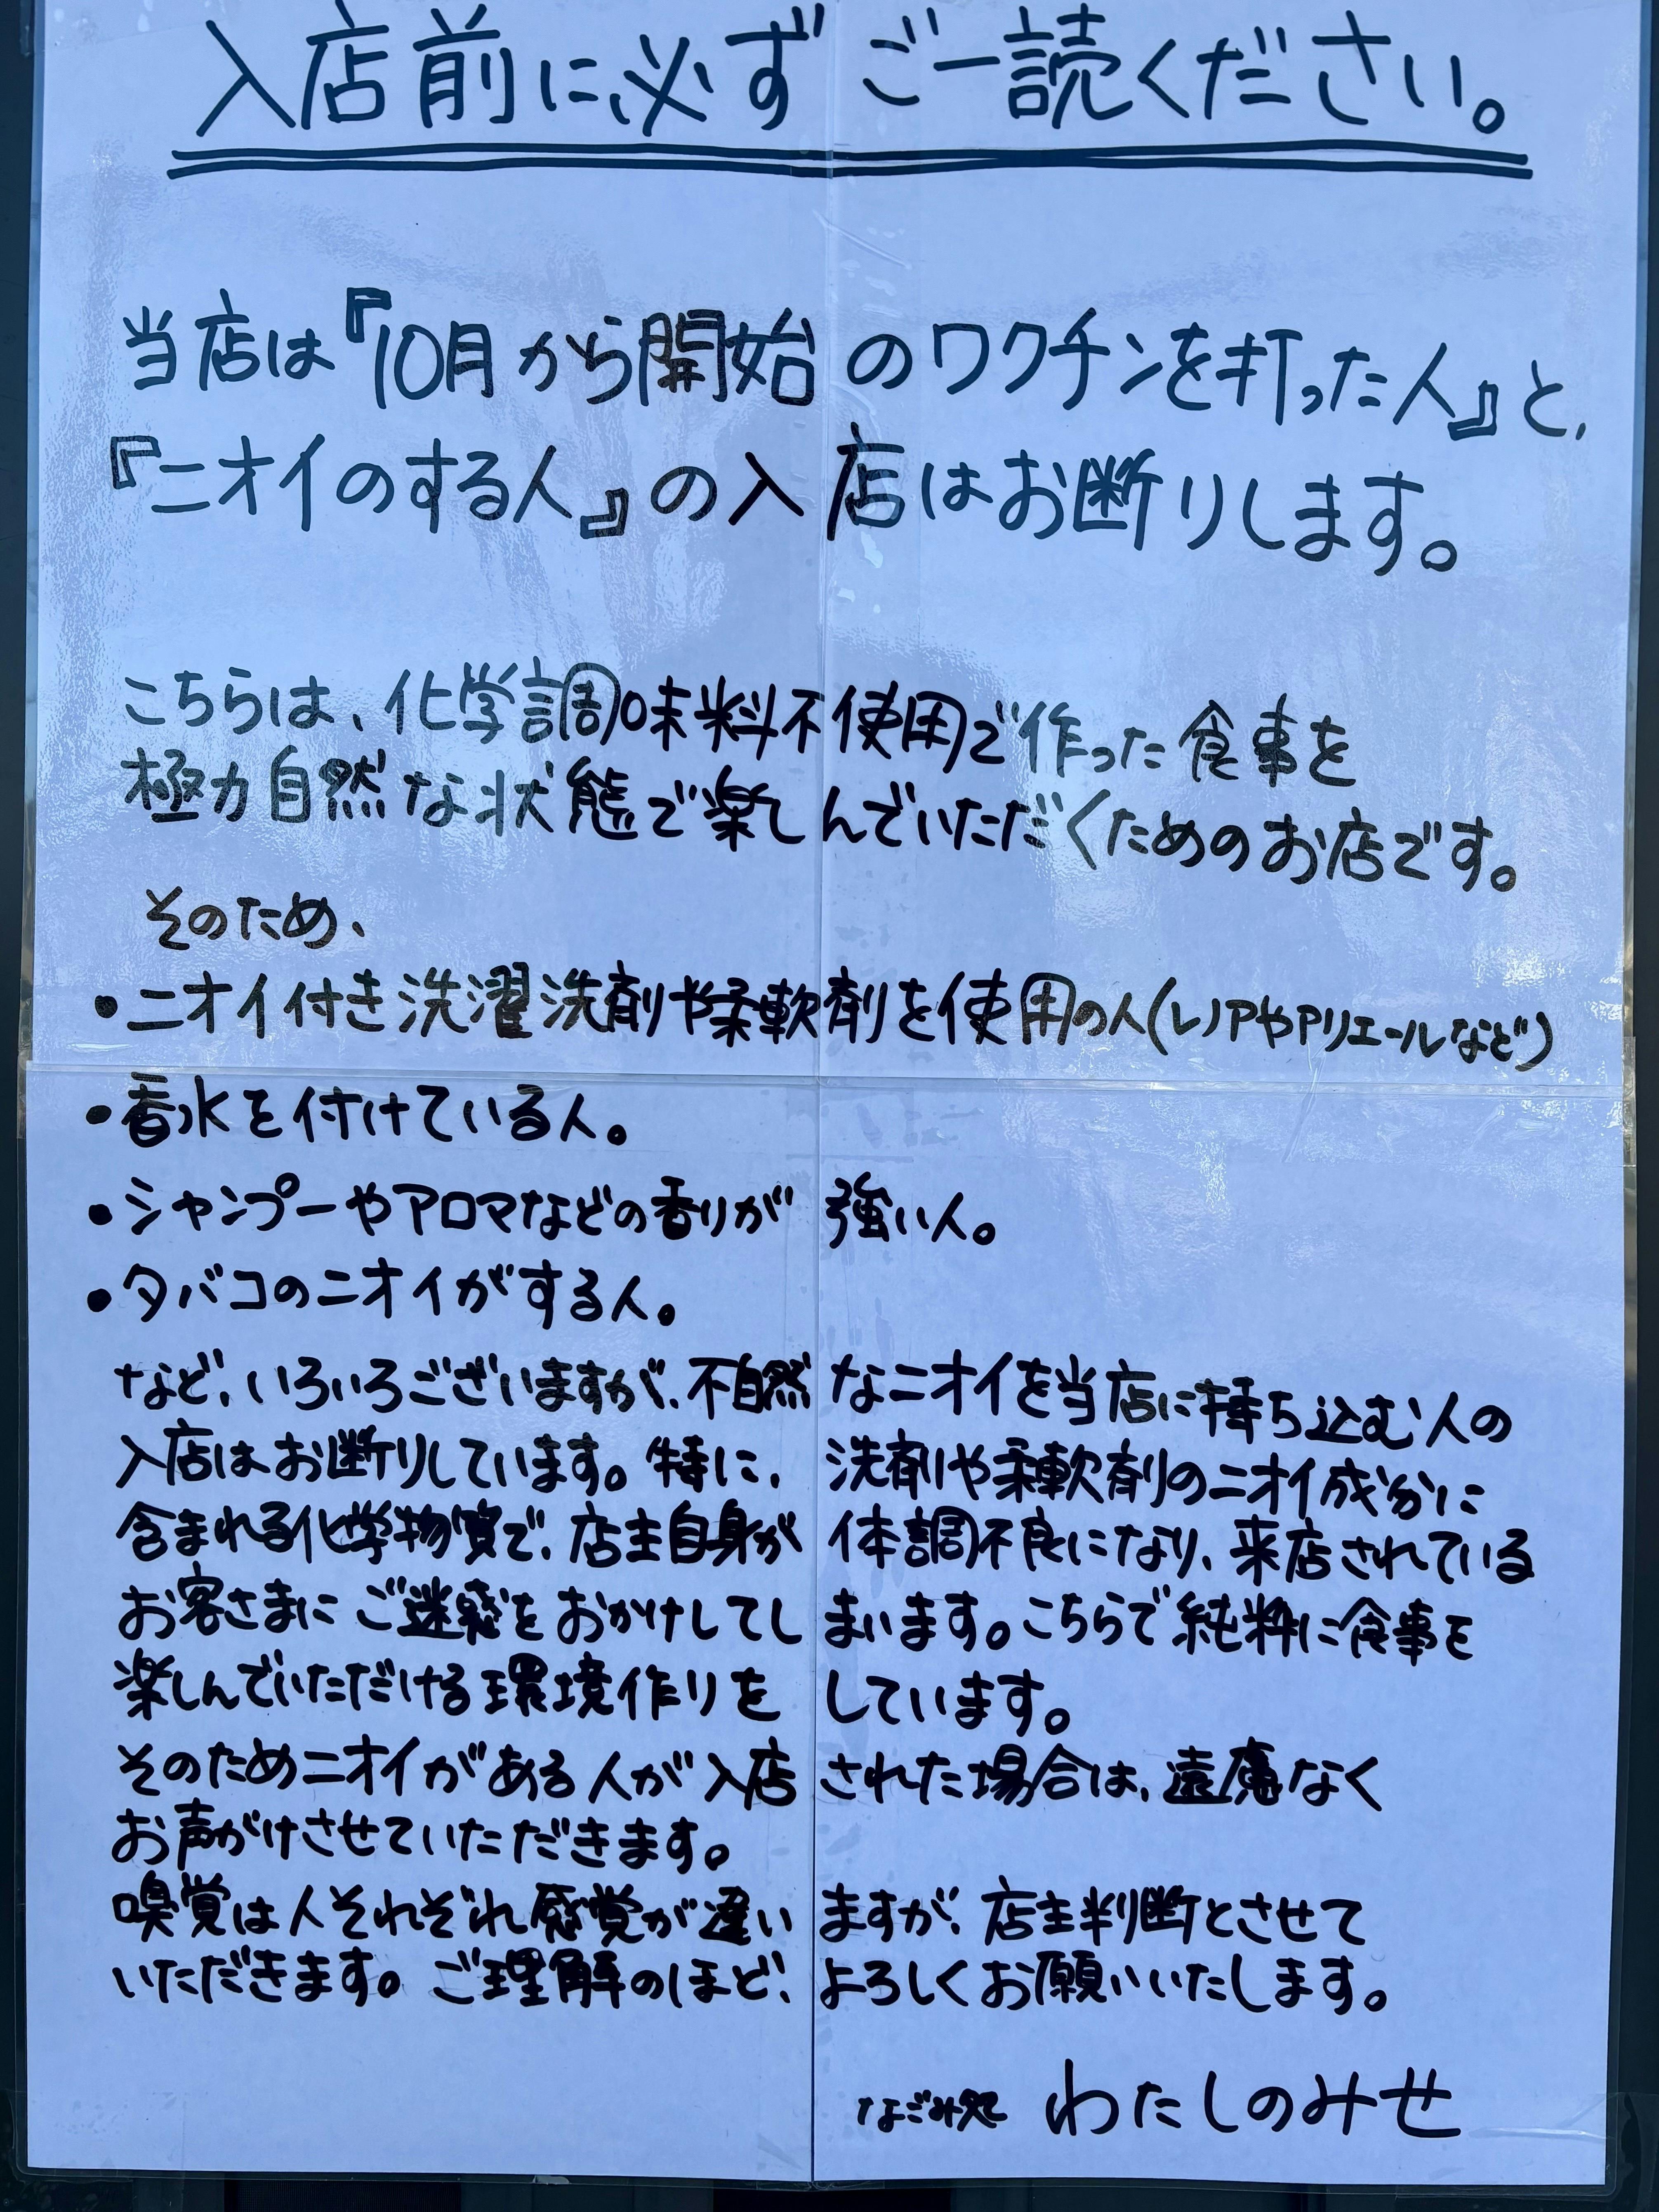 入店前に必ずご一読ください。
当店は『10月から開始のワクチンを打った人』と、
『ニオイのする人』の入店はお断りします。
こちらは、化学調味料不使用で作った食事を
極力自然な状態で楽しんでいただくためのお店です。
そのため、
・ニオイ付き洗濯洗剤や柔軟剤を使用の人(レノアやアリエールなど)
・香水を付けている人。
・シャンプーやアロマなどの香りが強い人。
・タバコのニオイがする人。
など、いろいろございますが、不自然なニオイを当店に持ち込む人の
入店はお断りしています。特に、洗剤や柔軟剤のニオイ成分に
含まれる化学物質で、店主自身が体調不良になり、来店されている
お客さまにご迷惑をおかけしてしまいます。こちらで純粋に食事を
楽しんでいただける環境作りをしています。
そのためニオイがある人が入店された場合は、遠慮なく
お声がけさせていただきます。
嗅覚は人それぞれ感覚が違いますが、店主判断とさせて
いただきます。ご理解のほど、よろしくお願いいたします。
なごみ処 わたしのみせ